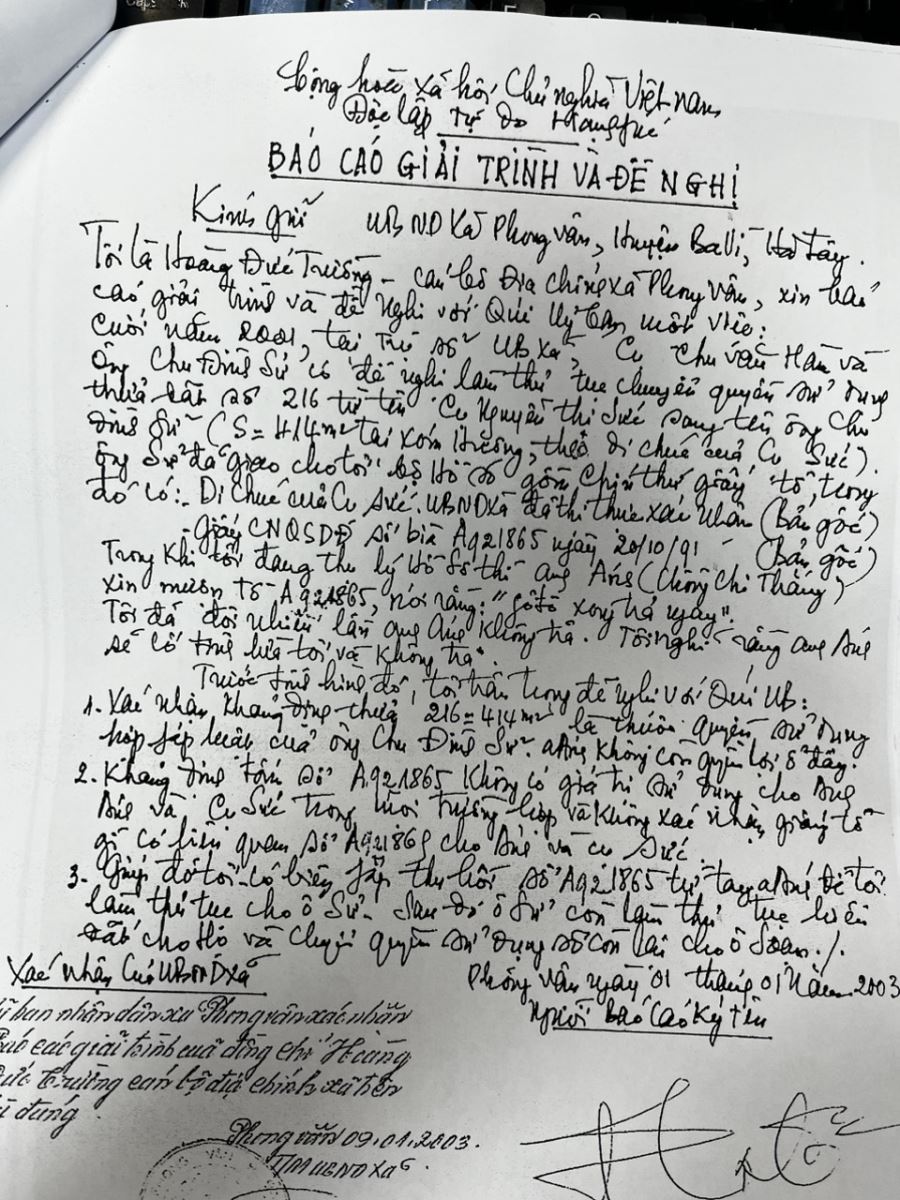 Cộng hoà xã hội Chủ nghĩa Việt nam
Độc lập Tự do Hạnh fúc
BÁO CÁO GIẢI TRÌNH VÀ ĐỀ NGHỊ
Kính gửi UBND Xã Phong Vân, Huyện Ba Vì, Hà Tây.
Tôi là Hoàng Đức Trường - cán bộ Địa chính xã Phong Vân, xin báo
cáo giải trình và đề nghị với Quí Uỷ ban một việc:
Cuối năm 2001, tại Trụ sở UB xã, Cụ Chu Văn Hàn và
Ông Chu Đình Sử có đề nghị làm thủ tục chuyển quyền sử dụng
thửa đất số 216 từ tên Cụ Nguyễn thị Sức sang tên ông Chu
Đình Sử (S = 414m² tại xóm Hưởng, theo di chúc của Cụ Sức).
Ông Sử đã giao cho tôi bộ Hồ sơ gồm Chín thứ giấy tờ, trong
đó có: - Di chúc của Cụ Sức. UBND xã đã thị thực xác nhận (Bản gốc)
- Giấy CNQSDĐ số bìa A921865 ngày 20/10/91 - (Bản gốc)
Trong khi tôi đang thụ lý Hồ sơ thì anh Ans (Chồng Chị Thắng)
xin mượn Tờ A921865, nói rằng: " xong trả ngay".
Tôi đã đòi nhiều lần anh không trả. Tôi nghĩ rằng anh
sẽ cố tình lừa tôi và không trả.
Trước tình hình đó, tôi trân trọng đề nghị với Quí UB:
1. Xác nhận khẳng định thửa 216 = 414m² là thuộc quyền sử dụng
hợp fáp luật của ông Chu Đình Sử. không còn quyền lợi ở đây.
2. Khẳng định số A921865 không có giá trị sử dụng cho
và Cụ Sức trong mọi trường hợp và không xác nhận giấy tờ
gì có liên quan số A921865 cho và cụ Sức.
3. Giúp đỡ tôi có biện fáp thu hồi số A921865 từ tay để tôi
làm thủ tục cho ô Sử. Sau đó ô Sử còn làm thủ tục hiến
đất cho Họ và chuyển quyền sử dụng số còn lại cho ô Soan./.
Phong Vân ngày 01 tháng 01 Năm 2003
Xác nhận Của UBND Xã
Người Báo Cáo Ký tên
ỷ ban nhân dân xã Phong vân xác nhận
các giải trình của đồng chí Hoàng
ức trường cán bộ địa chính xã
đúng
Phong vân 09.01.2003.
TM UBND Xã